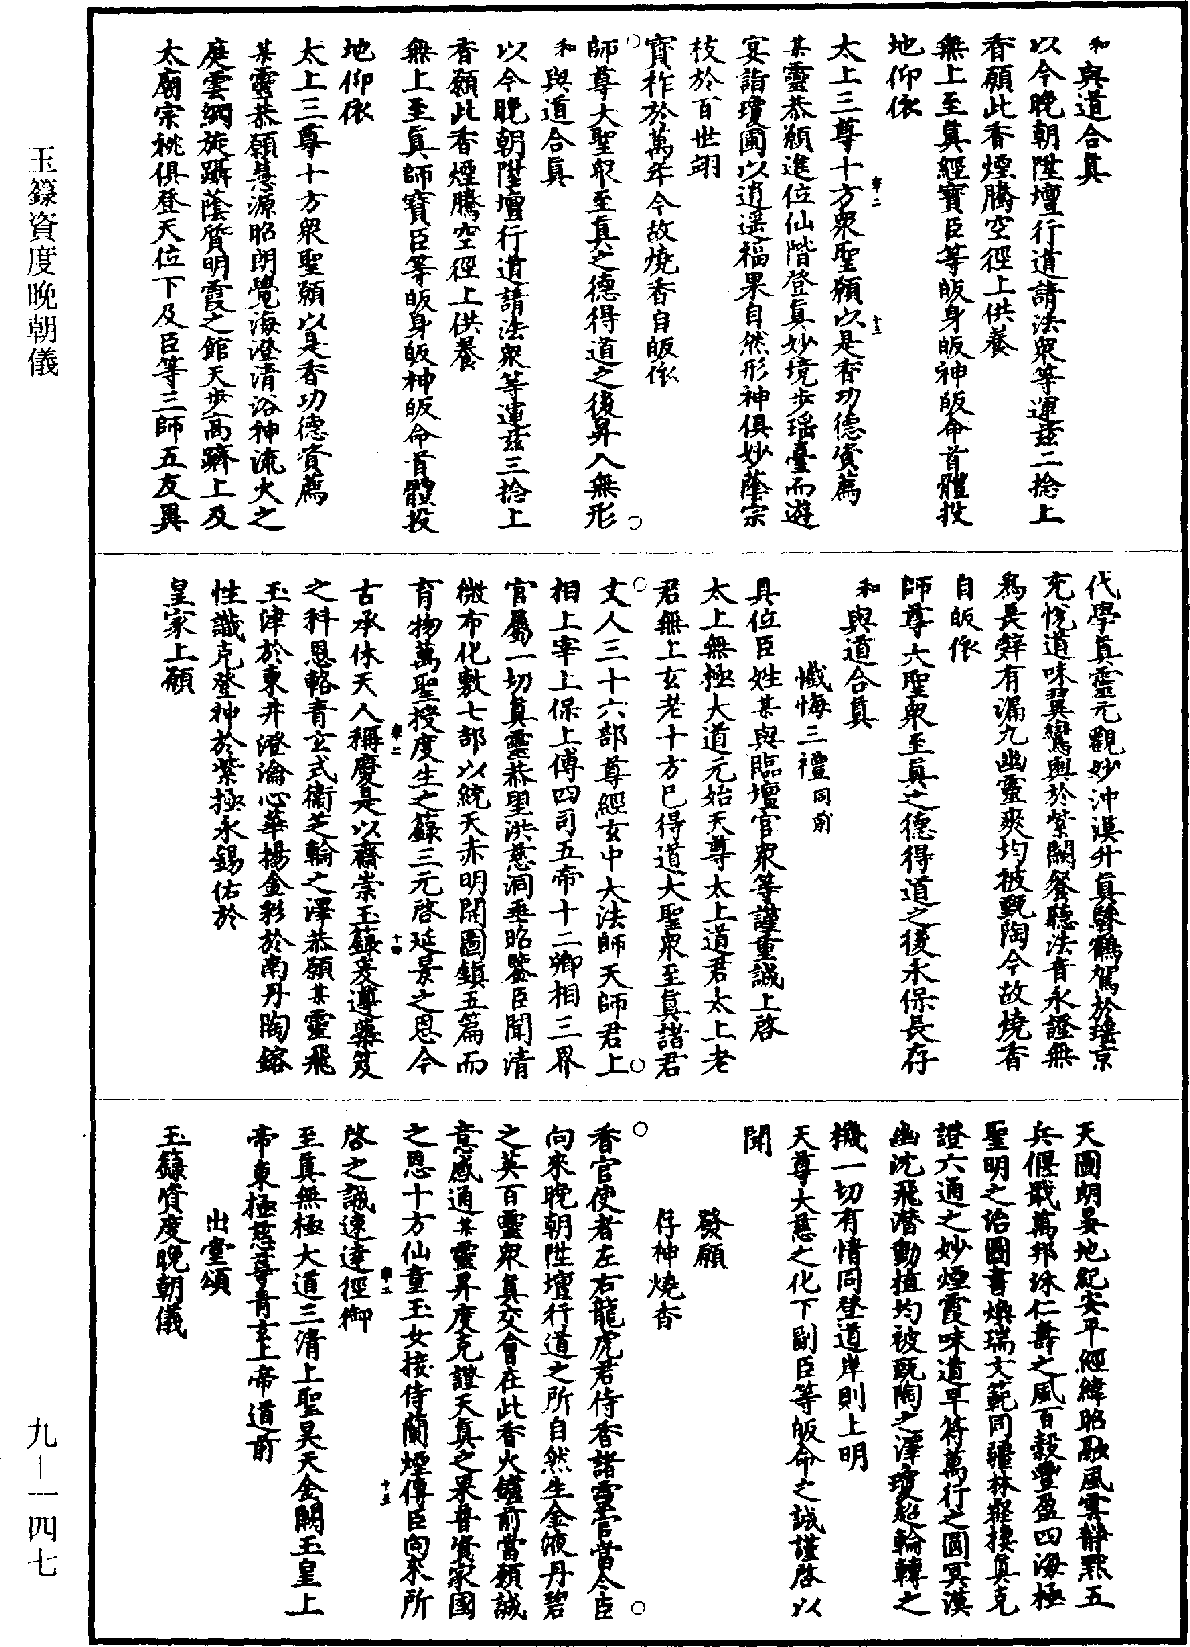 和與道合真
以今晚朝陞壇行道請法衆等運玆二捻上
香願此香煙騰空徑上供養
無上至真經寶臣等皈身皈神皈命首體投
地仰依
太上三尊十方衆聖願以是香功德資薦
某靈恭願進位仙階登真妙境步瑤臺而遊
宴詣瓊圃以逍遥福果自然形神俱妙蔭宗
枝於百世翊
寶祚於萬年今故燒香自皈依
師尊大聖衆至真之德得道之後昇入無形
和與道合真
以今晚朝陞壇行道請法衆等運玆三捻上
香願此香煙騰空徑上供養
無上至真師寶臣等皈身皈神皈命首體投
地仰依
太上三尊十方衆聖願以是香功德資薦
某靈恭願慧源昭朗覺海澄清浴神流火之
庭雲綱旋躡蔭質明霞之館天步高躋上及
太廟宗祧俱登天位下及臣等三師五友異
代學真靈元觀妙沖漠升真驂鶴駕於瑤京
充悅道味翼鸞輿於紫闕餐聽法音永證無
爲長辭有漏九幽靈爽均被甄陶今故燒香
自皈依
師尊大聖衆至真之德得道之後永保長存
和與道合真
懺悔三禮同前
具位臣姓某與臨壇官衆等謹重誠上啓
太上無極大道元始天尊太上道君太上老
君無上玄老十方已得道大聖衆至真諸君
丈人三十六部尊經玄中大法師天師君上
相上宰上保上傅四司五帝十二卿相三界
官屬一切真靈恭望洪慈洞垂昭鑒臣聞清
微布化敷七部以統天赤明開圖鎮五篇而
育物萬聖授度生之籙三元啓延景之恩今
古承休天人稱慶是以齋崇玉籙爰遵蘂笈
之科恩輅青玄式衞芝輪之澤恭願某靈飛
玉津於東井澄瀹心華揚金彩於南丹陶鎔
性識克登神於紫極永錫佑於
皇家上願
天圖朗晏地紀安平經緯昭融風雲靜默五
兵偃戢萬邦詠仁壽之風百穀豐盈四海極
聖明之治圖書煥瑞文範同疆林壑棲真克
證六通之妙煙霞味道早符萬行之圓冥漠
幽沈飛潛動植均被甄陶之澤瓊超輪轉之
機一切有情同登道岸則上明
天尊大慈之化下副臣等皈命之誠謹啓以
聞
發願
存神燒香
香官使者左右龍虎君侍香諸靈官當令臣
向來晚朝陞壇行道之所自然生金液丹碧
之英百靈衆真交會在此香火鑪前當願誠
意感通某靈昇度克證天真之果普資家國
之恩十方仙童玉女接侍蘭煙傳臣向來所
啓之誠速達徑御
至真無極大道三清上聖昊天金闕玉皇上
帝東極慈尊青玄上帝道前
出堂頌
玉籙資度晚朝儀
玉籙資度晚朝儀
九—一四七